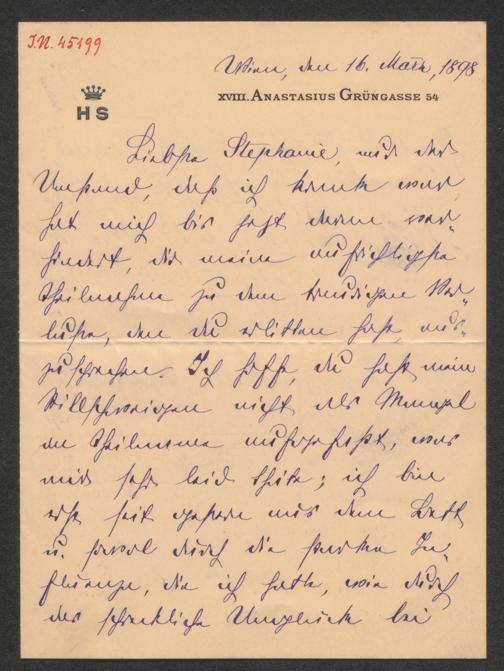 I.N. 45199
Wien, den 16. März, 1898
HS
XVIII. ANASTASIUS GRÜNGASSE 54
Liebste Stephanie, nur der
Umstand, daß ich krank war
hat mich bis jetzt daran ver-
hindert, dir meine aufrichtigste
Theilnahme zu dem traurigen Ver-
luste, den du erlitten hast, aus-
zusprechen. Ich hoffe, du hast mein
Stillschweigen nicht als Mangel
an Theilnahme aufgefaßt, was
mir sehr leid thäte; ich bin
erst seit gestern aus dem Bett
u. sowol durch die starke In-
fluenza, die ich hatte, wie durch
das schreckliche Unglück bei